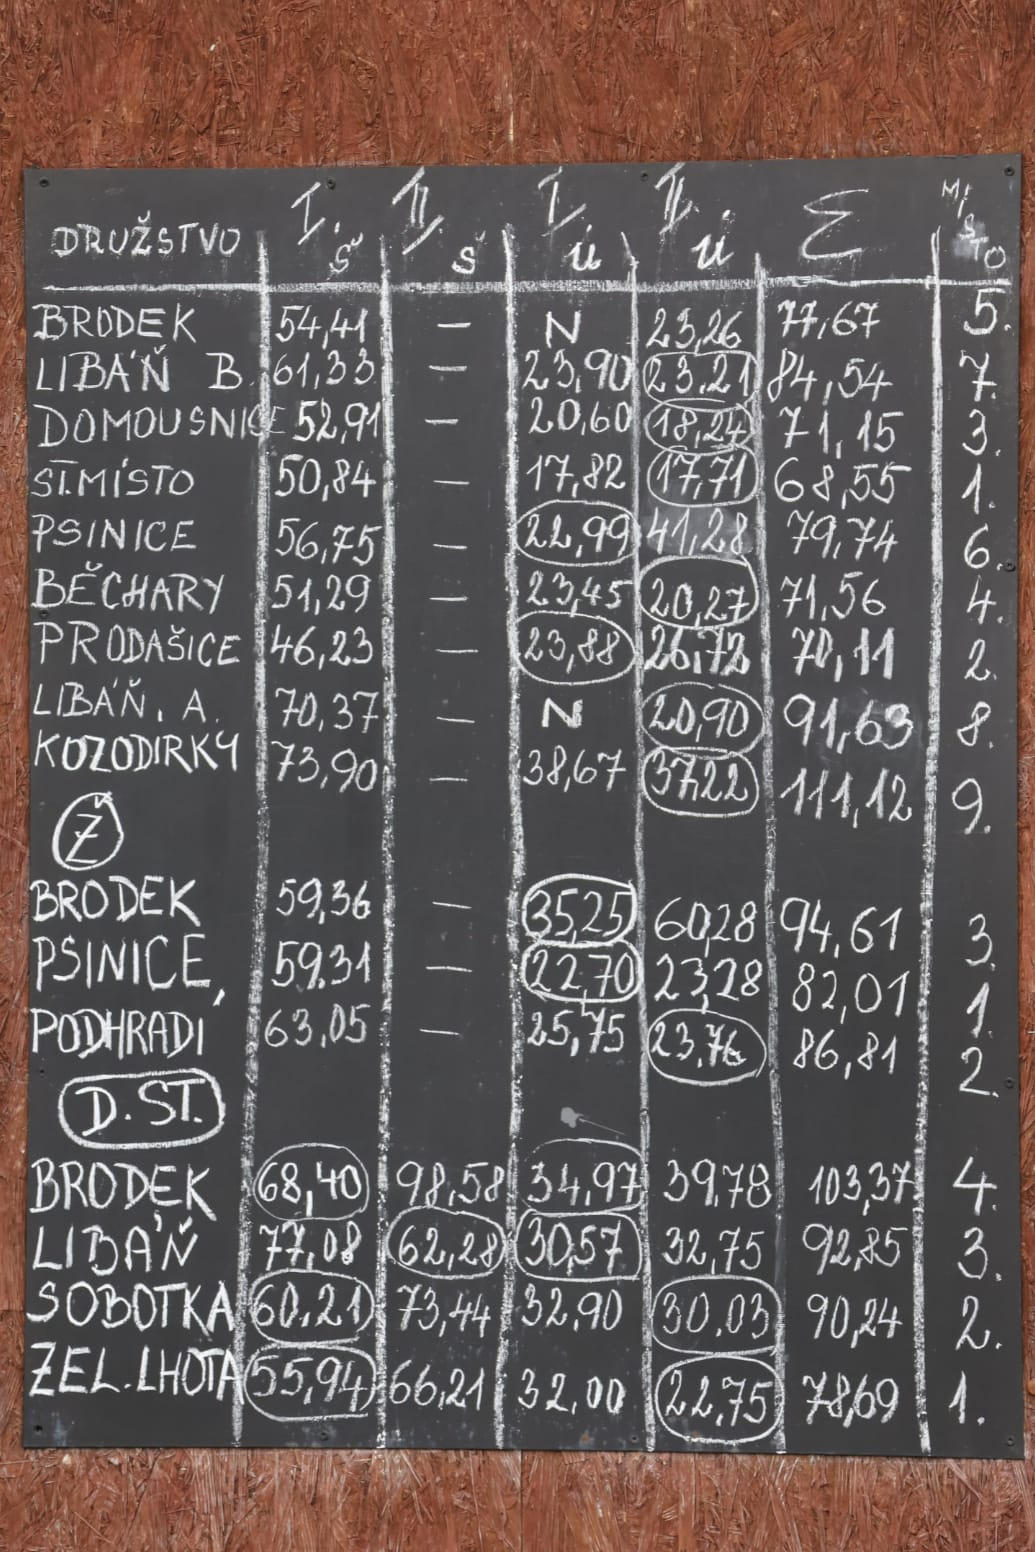 DRUŽSTVO I. Š II. Š I. Ú II. Ú Σ MÍSTO
BRODEK 54,41 — N 23,26 77,67 5.
LIBÁŇ B 61,33 — 23,90 23,21 84,54 7.
DOMOUSNICE 52,91 — 20,60 18,24 71,15 3.
ST.MÍSTO 50,84 — 17,82 17,71 68,55 1.
PSINICE 56,75 — 22,99 41,28 79,74 6.
BĚCHARY 51,29 — 23,45 20,27 71,56 4.
PRODAŠICE 46,23 — 23,88 26,72 70,11 2.
LIBÁŇ. A. 70,37 — N 20,90 91,63 8.
KOZODIRKY 73,90 — 38,67 37,22 111,12 9.
Ž
BRODEK 59,36 — 35,25 60,28 94,61 3.
PSINICE 59,31 — 22,70 23,28 82,01 1.
PODHRADÍ 63,05 — 25,75 23,76 86,81 2.
D.ST.
BRODEK 68,40 98,58 34,97 39,78 103,37 4.
LIBÁŇ 77,08 62,28 30,57 32,75 92,85 3.
SOBOTKA 60,21 73,44 32,90 30,03 90,24 2.
ZEL.LHOTA 55,94 66,21 32,00 22,75 78,69 1.